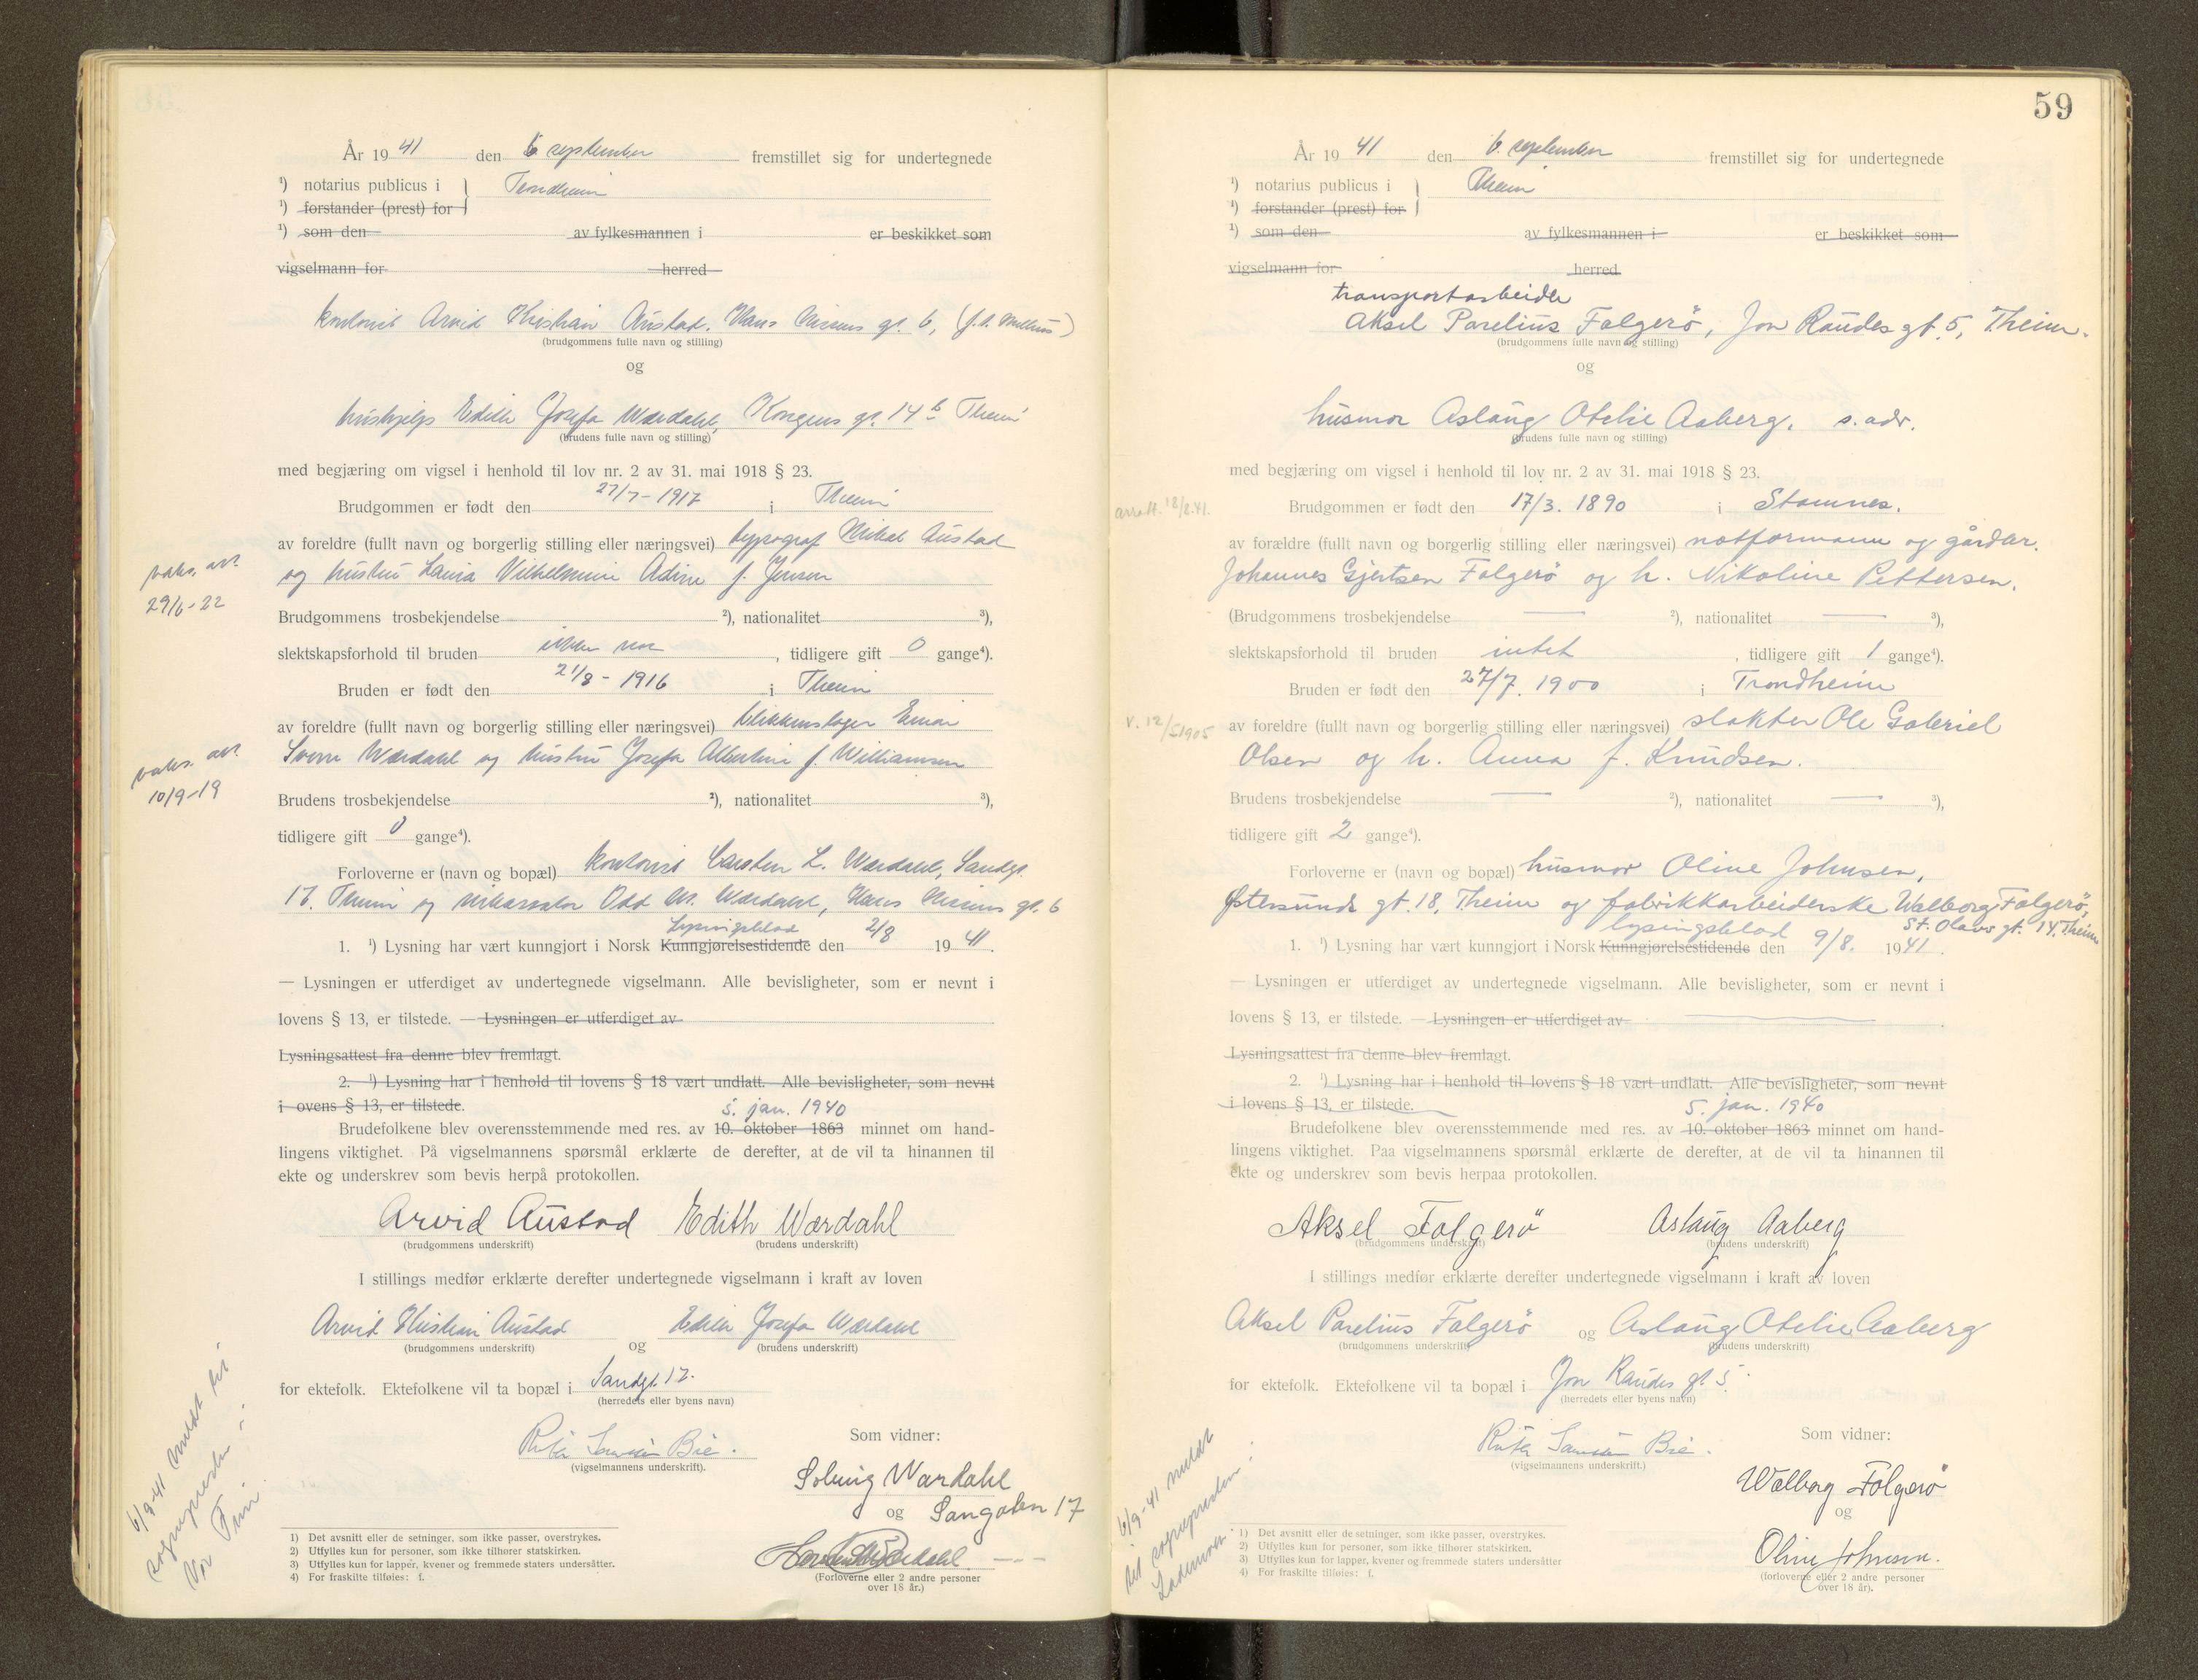 År 19 41 den 6. september fremstillet sig for undertegnede
¹) notarius publicus i Trondheim
¹) forstander (prest) for
¹) som den av fylkesmannen i er beskikket som
vigselmann for herred
kontorist Arvid Kristian Austad. Hans Nissens gt. 6,
(brudgommens fulle navn og stilling)
og
hushjelp Edith Josefa Wærdahl, Kongens gt. 14 b Theim
(brudens fulle navn og stilling)
med begjæring om vigsel i henhold til lov nr. 2 av 31. mai 1918 § 23.
Brudgommen er født den 27/7-1917 i Theim
av foreldre (fullt navn og borgerlig stilling eller næringsvei) typograf Mikal Austad
og hustru Laura Vilhelmine Adine f. Jensen
vaks. att.
29/6-22
Brudgommens trosbekjendelse ²), nationalitet ³),
slektskapsforhold til bruden ikke noe, tidligere gift 0 gange⁴).
Bruden er født den 21/8-1916 i Theim
av foreldre (fullt navn og borgerlig stilling eller næringsvei) blikkenslager Einar
Sverre Wærdahl og hustru Josefa Albertine f. Williamsen
vaks. att.
10/9-19
Brudens trosbekjendelse ²), nationalitet ³),
tidligere gift 0 gange⁴).
Forloverne er (navn og bopæl) kontorist Carsten L. Wærdahl, Sandgt.
17. Theim og Odd M. Wærdahl, Hans Nissens gt. 6
Lysingsblad
1. ¹) Lysning har vært kunngjort i Norsk Kunngjørelsestidende den 2/8 19 41.
— Lysningen er utferdiget av undertegnede vigselmann. Alle bevisligheter, som er nevnt i
lovens § 13, er tilstede. — Lysningen er utferdiget av
Lysningsattest fra denne blev fremlagt.
2. ¹) Lysning har i henhold til lovens § 18 vært undlatt. Alle bevisligheter, som nevnt
i ovens § 13, er tilstede.
5. jan. 1940
Brudefolkene blev overensstemmende med res. av 10. oktober 1863 minnet om hand-
lingens viktighet. På vigselmannens spørsmål erklærte de derefter, at de vil ta hinannen til
ekte og underskrev som bevis herpå protokollen.
Arvid Austad Edith Wærdahl
(brudgommens underskrift) (brudens underskrift)
I stillings medfør erklærte derefter undertegnede vigselmann i kraft av loven
Arvid Kristian Austad og Edith Josefa Wærdahl
(brudgommens underskrift) (brudens underskrift)
for ektefolk. Ektefolkene vil ta bopæl i Sandgt. 17.
(herredets eller byens navn)
Som vidner:
Ruth Bie.
(vigselmannens underskrift).
Solveig Wærdahl
og Sangaten 17
Wærdahl.
(Forloverne eller 2 andre personer
over 18 år.)
6/9-41 meldt til
sognepresten i
Vår Frue
1) Det avsnitt eller de setninger, som ikke passer, overstrykes.
2) Utfylles kun for personer, som ikke tilhører statskirken.
3) Utfylles kun for lapper, kvener og fremmede staters undersåtter.
4) For fraskilte tilføies: f.
59
År 19 41 den 6. september fremstillet sig for undertegnede
¹) notarius publicus i Theim
¹) forstander (prest) for
¹) som den av fylkesmannen i er beskikket som
vigselmann for herred
transportarbeider
Aksel Parelius Falgerö, Jon Raudes gt. 5, Theim.
(brudgommens fulle navn og stilling)
og
husmor Aslaug Otelie Aaberg. s. adr.
(brudens fulle navn og stilling)
med begjæring om vigsel i henhold til lov nr. 2 av 31. mai 1918 § 23.
Brudgommen er født den 17/3. 1890 i Stamnes.
av forældre (fullt navn og borgerlig stilling eller næringsvei) notformann og gårdbr.
Johannes Gjertsen Falgerö og h. Nikoline Pettersen.
(Brudgommens trosbekjendelse — ²), nationalitet — ³),
slektskapsforhold til bruden intet, tidligere gift 1 gange⁴).
Bruden er født den 27/7. 1900 i Trondheim
v. 12/5 1905
av foreldre (fullt navn og borgerlig stilling eller næringsvei) slakter Ole Gabriel
Olsen og h. Anna f. Knudsen.
Brudens trosbekjendelse — ²), nationalitet — ³),
tidligere gift 2 gange⁴).
Forloverne er (navn og bopæl) husmor Oline Johnsen,
Østersunds gt. 18, Theim og fabrikkarbeiderske Walborg Falgerö,
St. Olavs gt. 14. Theim
lysingsblad
1. ¹) Lysning har vært kunngjort i Norsk Kunngjørelsestidende den 9/8. 1941.
— Lysningen er utferdiget av undertegnede vigselmann. Alle bevisligheter, som er nevnt i
lovens § 13, er tilstede. — Lysningen er utferdiget av
Lysningsattest fra denne blev fremlagt.
2. ¹) Lysning har i henhold til lovens § 18 vært undlatt. Alle bevisligheter, som nevnt
i lovens § 13, er tilstede.
5. jan. 1940
Brudefolkene blev overensstemmende med res. av 10. oktober 1863 minnet om hand-
lingens viktighet. Paa vigselmannens spørsmål erklærte de derefter, at de vil ta hinannen til
ekte og underskrev som bevis herpaa protokollen.
Aksel Falgerö Aslaug Aaberg
(brudgommens underskrift) (brudens underskrift)
I stillings medfør erklærte derefter undertegnede vigselmann i kraft av loven
Aksel Parelius Falgerö og Aslaug Otelie Aaberg
(brudgommens underskrift) (brudens underskrift)
for ektefolk. Ektefolkene vil ta bopæl i Jon Raudes gt. 5.
(herredets eller byens navn)
Som vidner:
Ruth Bie.
(vigselmannens underskrift.)
Walborg Falgerö
og
Oline Johnsen.
(forloverne eller 2 andre personer
over 18 år).
6/9-41 meldt
til sognepresten i
Lademoen
1) Det avsnitt eller de setninger, som ikke passer, overstrykes.
2) Utfylles kun for personer, som ikke tilhører statskirken.
3) Utfylles kun for lapper, kvener og fremmede staters undersåtter
4) For fraskilte tilføies: f.